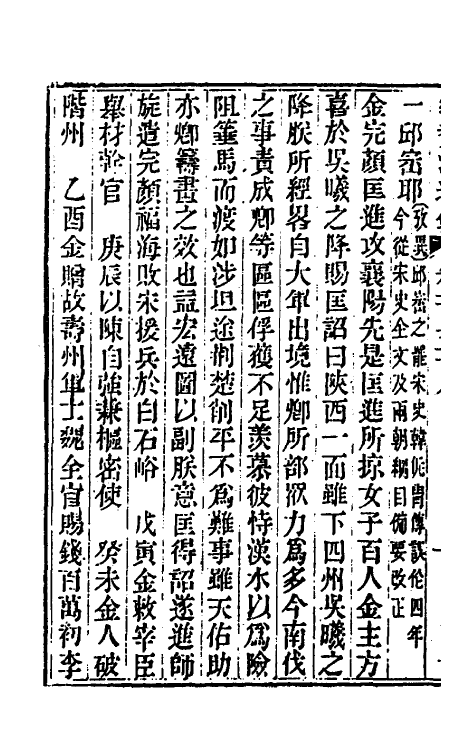 一邱崈耶(攷異邱崈之罷宋史韓侂胄傳誤伦四年
今從宋史全文及兩朝綱目備要改正
金完顏匡進攻襄陽先是匡進所掠女子百人金主方
喜於吳曦之降賜匡詔曰陜西一面雖下四州吳曦之
降朕所經畧自大軍出境惟卿所部㰸力爲多今南伐
之事責成卿等區區俘獲不足羨慕彼恃漢水以爲險
阻箠馬而渡如涉坦途荆楚削平不爲難事雖天佑助
亦卿籌畫之效也益宏遠圖以副朕意匡得詔遂進師
旋遣完顏福海敗宋援兵於白石峪 戊寅金敕宰臣
舉材幹官 庚辰以陳自強兼樞密使 癸未金人破
階州 乙酉金贈故壽州軍士魏全官賜錢百萬初李